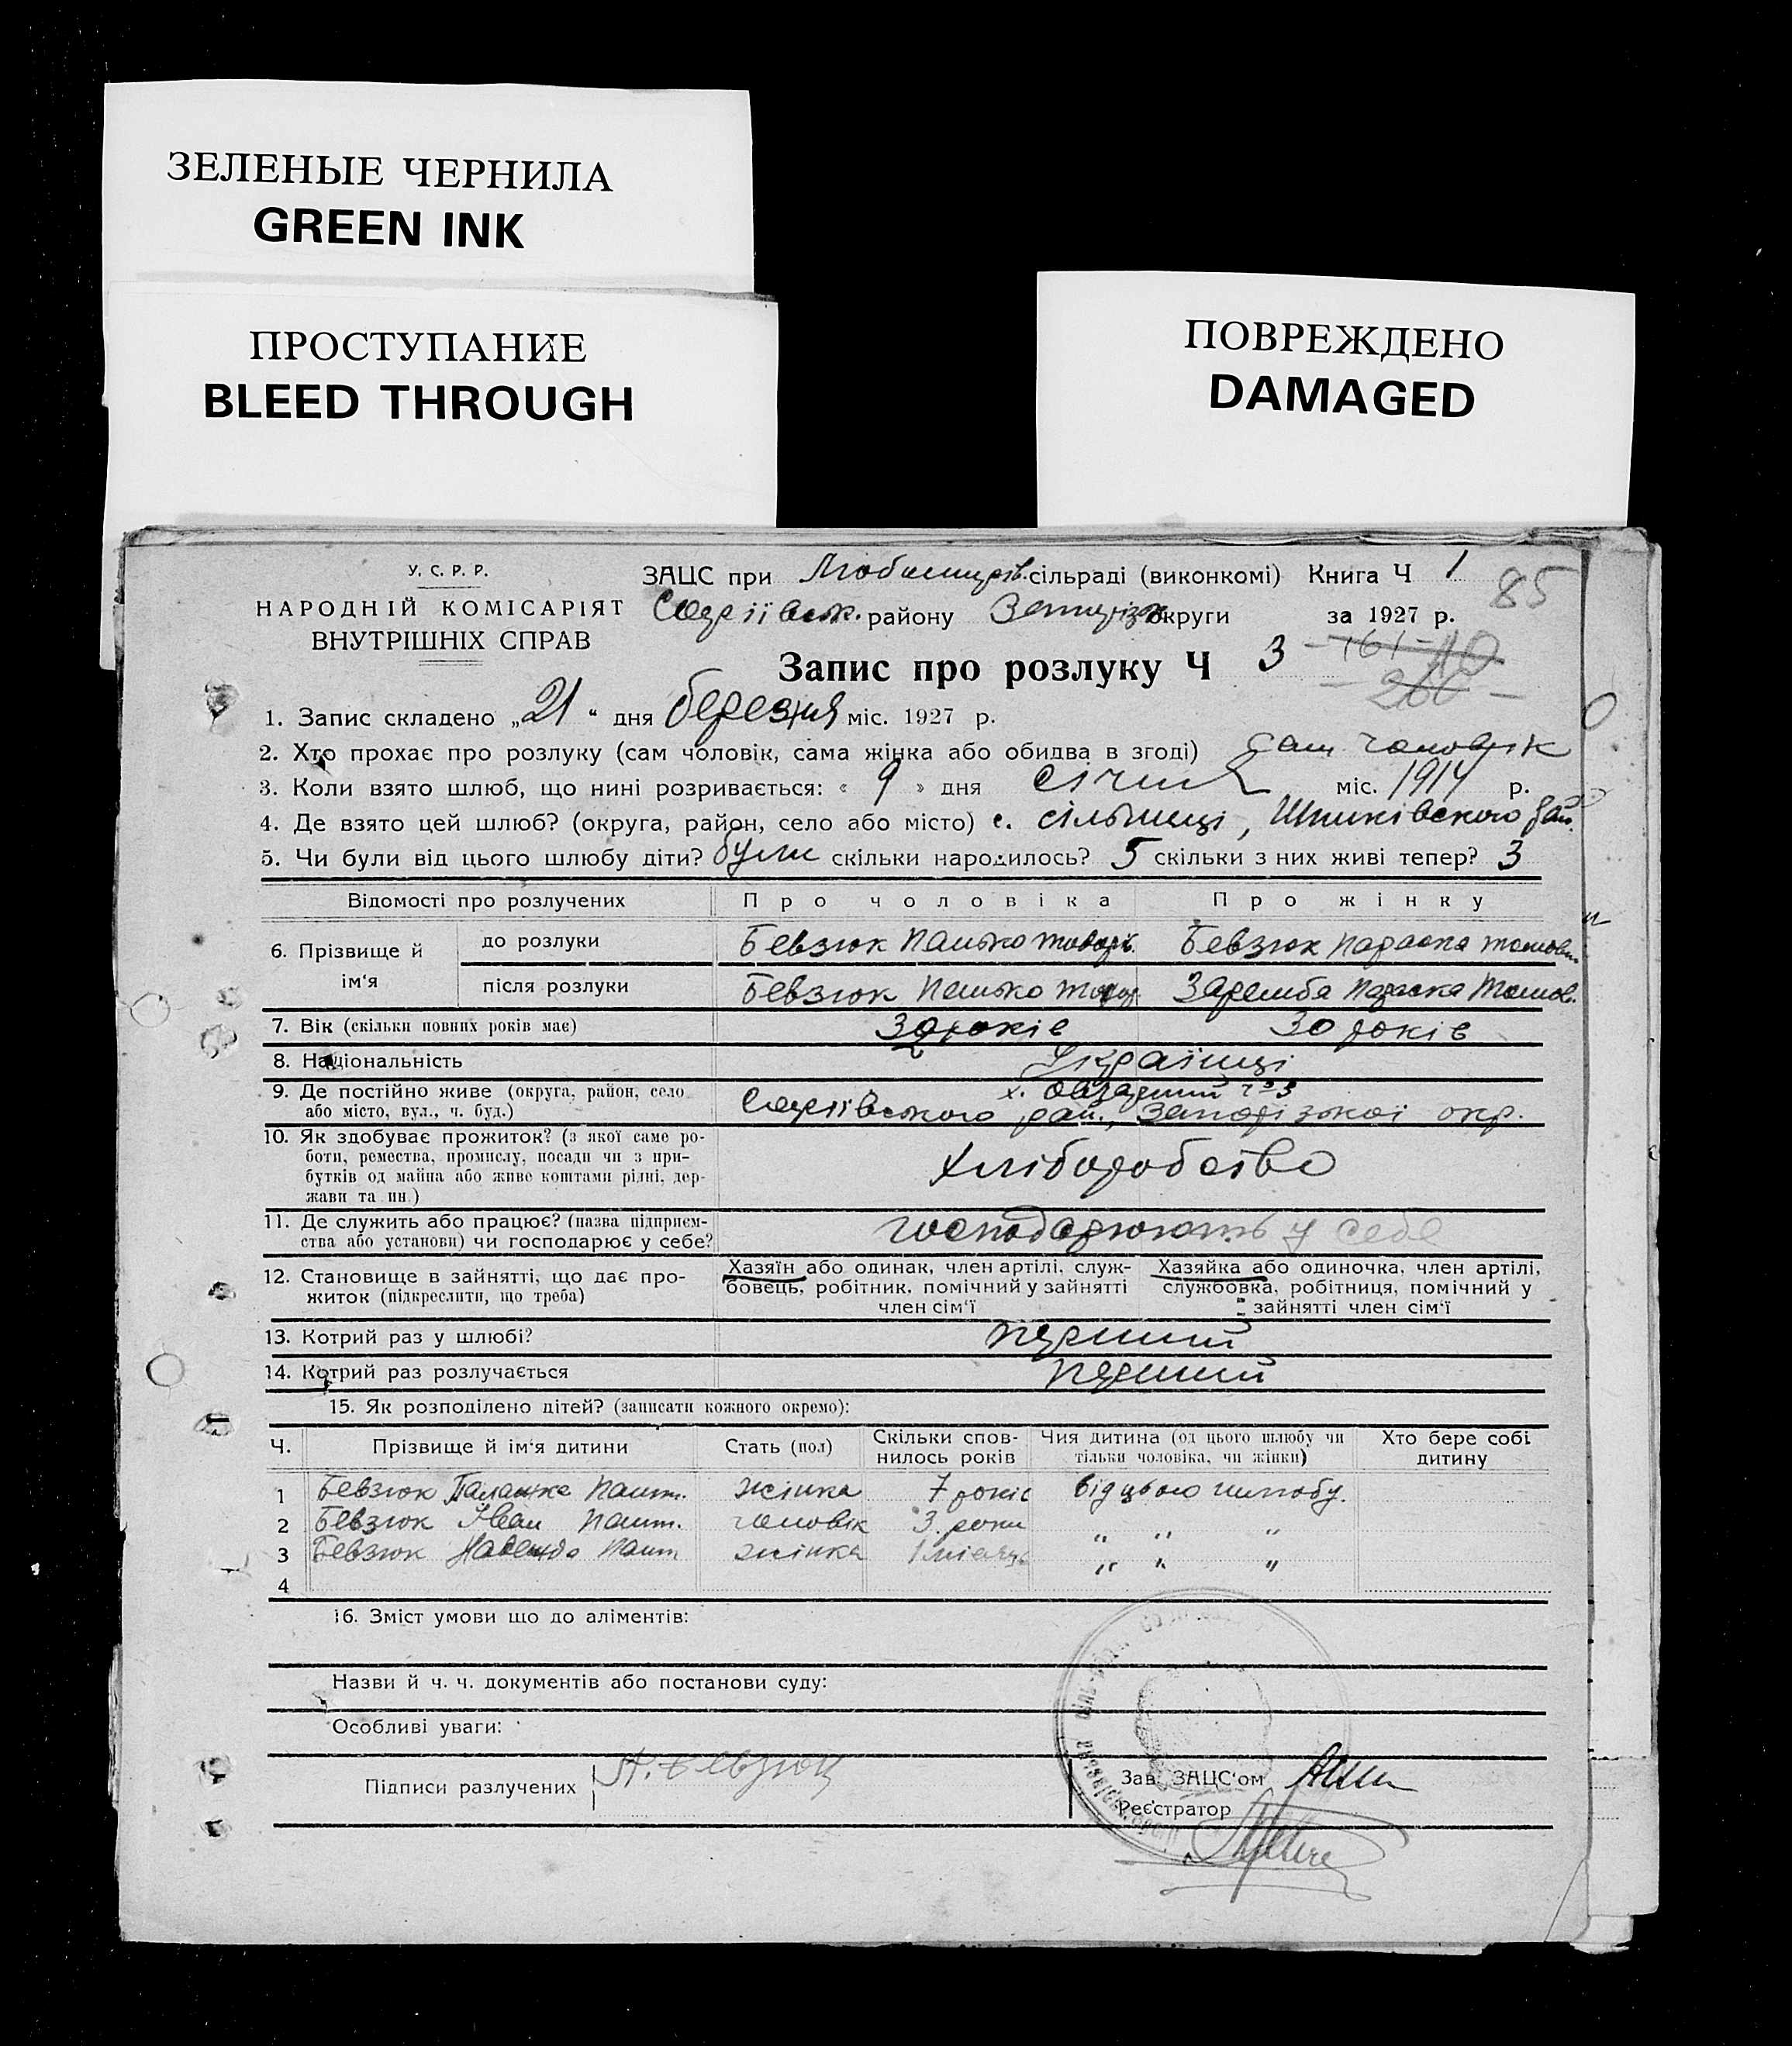 ЗЕЛЕНЫЕ ЧЕРНИЛА
GREEN INK
ПРОСТУПАНИЕ
BLEED THROUGH
ПОВРЕЖДЕНО
DAMAGED
У. С. Р. Р.
НАРОДНІЙ КОМІСАРІЯТ
ВНУТРІШНІХ СПРАВ
ЗАЦС при сільраді (виконкомі) Книга Ч 1
85
району округи за 1927 р.
Запис про розлуку Ч 3
161
10
200
1. Запис складено „21“ дня березня міс. 1927 р.
2. Хто прохає про розлуку (сам чоловік, сама жінка або обидва в згоді) сам чоловік
3. Коли взято шлюб, що нині розривається: « 9 » дня січня міс. 1914 р.
4. Де взято цей шлюб? (округа, район, село або місто) с. сільниці, Шпиківського рай.
5. Чи були від цього шлюбу діти? були скільки народилось? 5 скільки з них живі тепер? 3
Відомості про розлучених Про чоловіка Про жінку
6. Прізвище й ім‘я
до розлуки Бевзюк Панько Бевзюк Параска
після розлуки Бевзюк Панько Заремба Параска
7. Вік (скільки повних років має) років 30 років
8. Національність Українці
9. Де постійно живе (округа, район, село
або місто, вул., ч. буд.)
х. №3
рай., Запорізької окр.
10. Як здобуває прожиток? (з якої саме ро-
боти, ремества, промислу, посади чи з при-
бутків од майна або живе коштами рідні, дер-
жави та ин.)
Хліборобство
11. Де служить або працює? (назва підприєм-
ства або установи) чи господарює у себе?
господарюють у себе
12. Становище в зайнятті, що дає про-
житок (підкреслити, що треба)
Хазяїн або одинак, член артілі, служ-
бовець, робітник, помічний у зайнятті
член сім‘ї
Хазяйка або одиночка, член артілі,
службовка, робітниця, помічний у
зайнятті член сім‘ї
13. Котрий раз у шлюбі? перший
14. Котрий раз розлучається перший
15. Як розподілено дітей? (записати кожного окремо):
Ч. Прізвище й ім‘я дитини Стать (пол) Скільки спов-
нилось років Чия дитина (од цього шлюбу чи
тільки чоловіка, чи жінки) Хто бере собі
дитину
1 Бевзюк Палажка Пант. жінка 7 років від цього шлюбу.
2 Бевзюк Іван Пант. чоловік 3 роки „ „ „
3 Бевзюк Надежда Пант. жінка 1 місяць „ „ „
4
16. Зміст умови що до аліментів:
Назви й ч. ч. документів або постанови суду:
Особливі уваги:
Підписи разлучених П. Бевзюк
Зав. ЗАЦС‘ом
Реєстратор